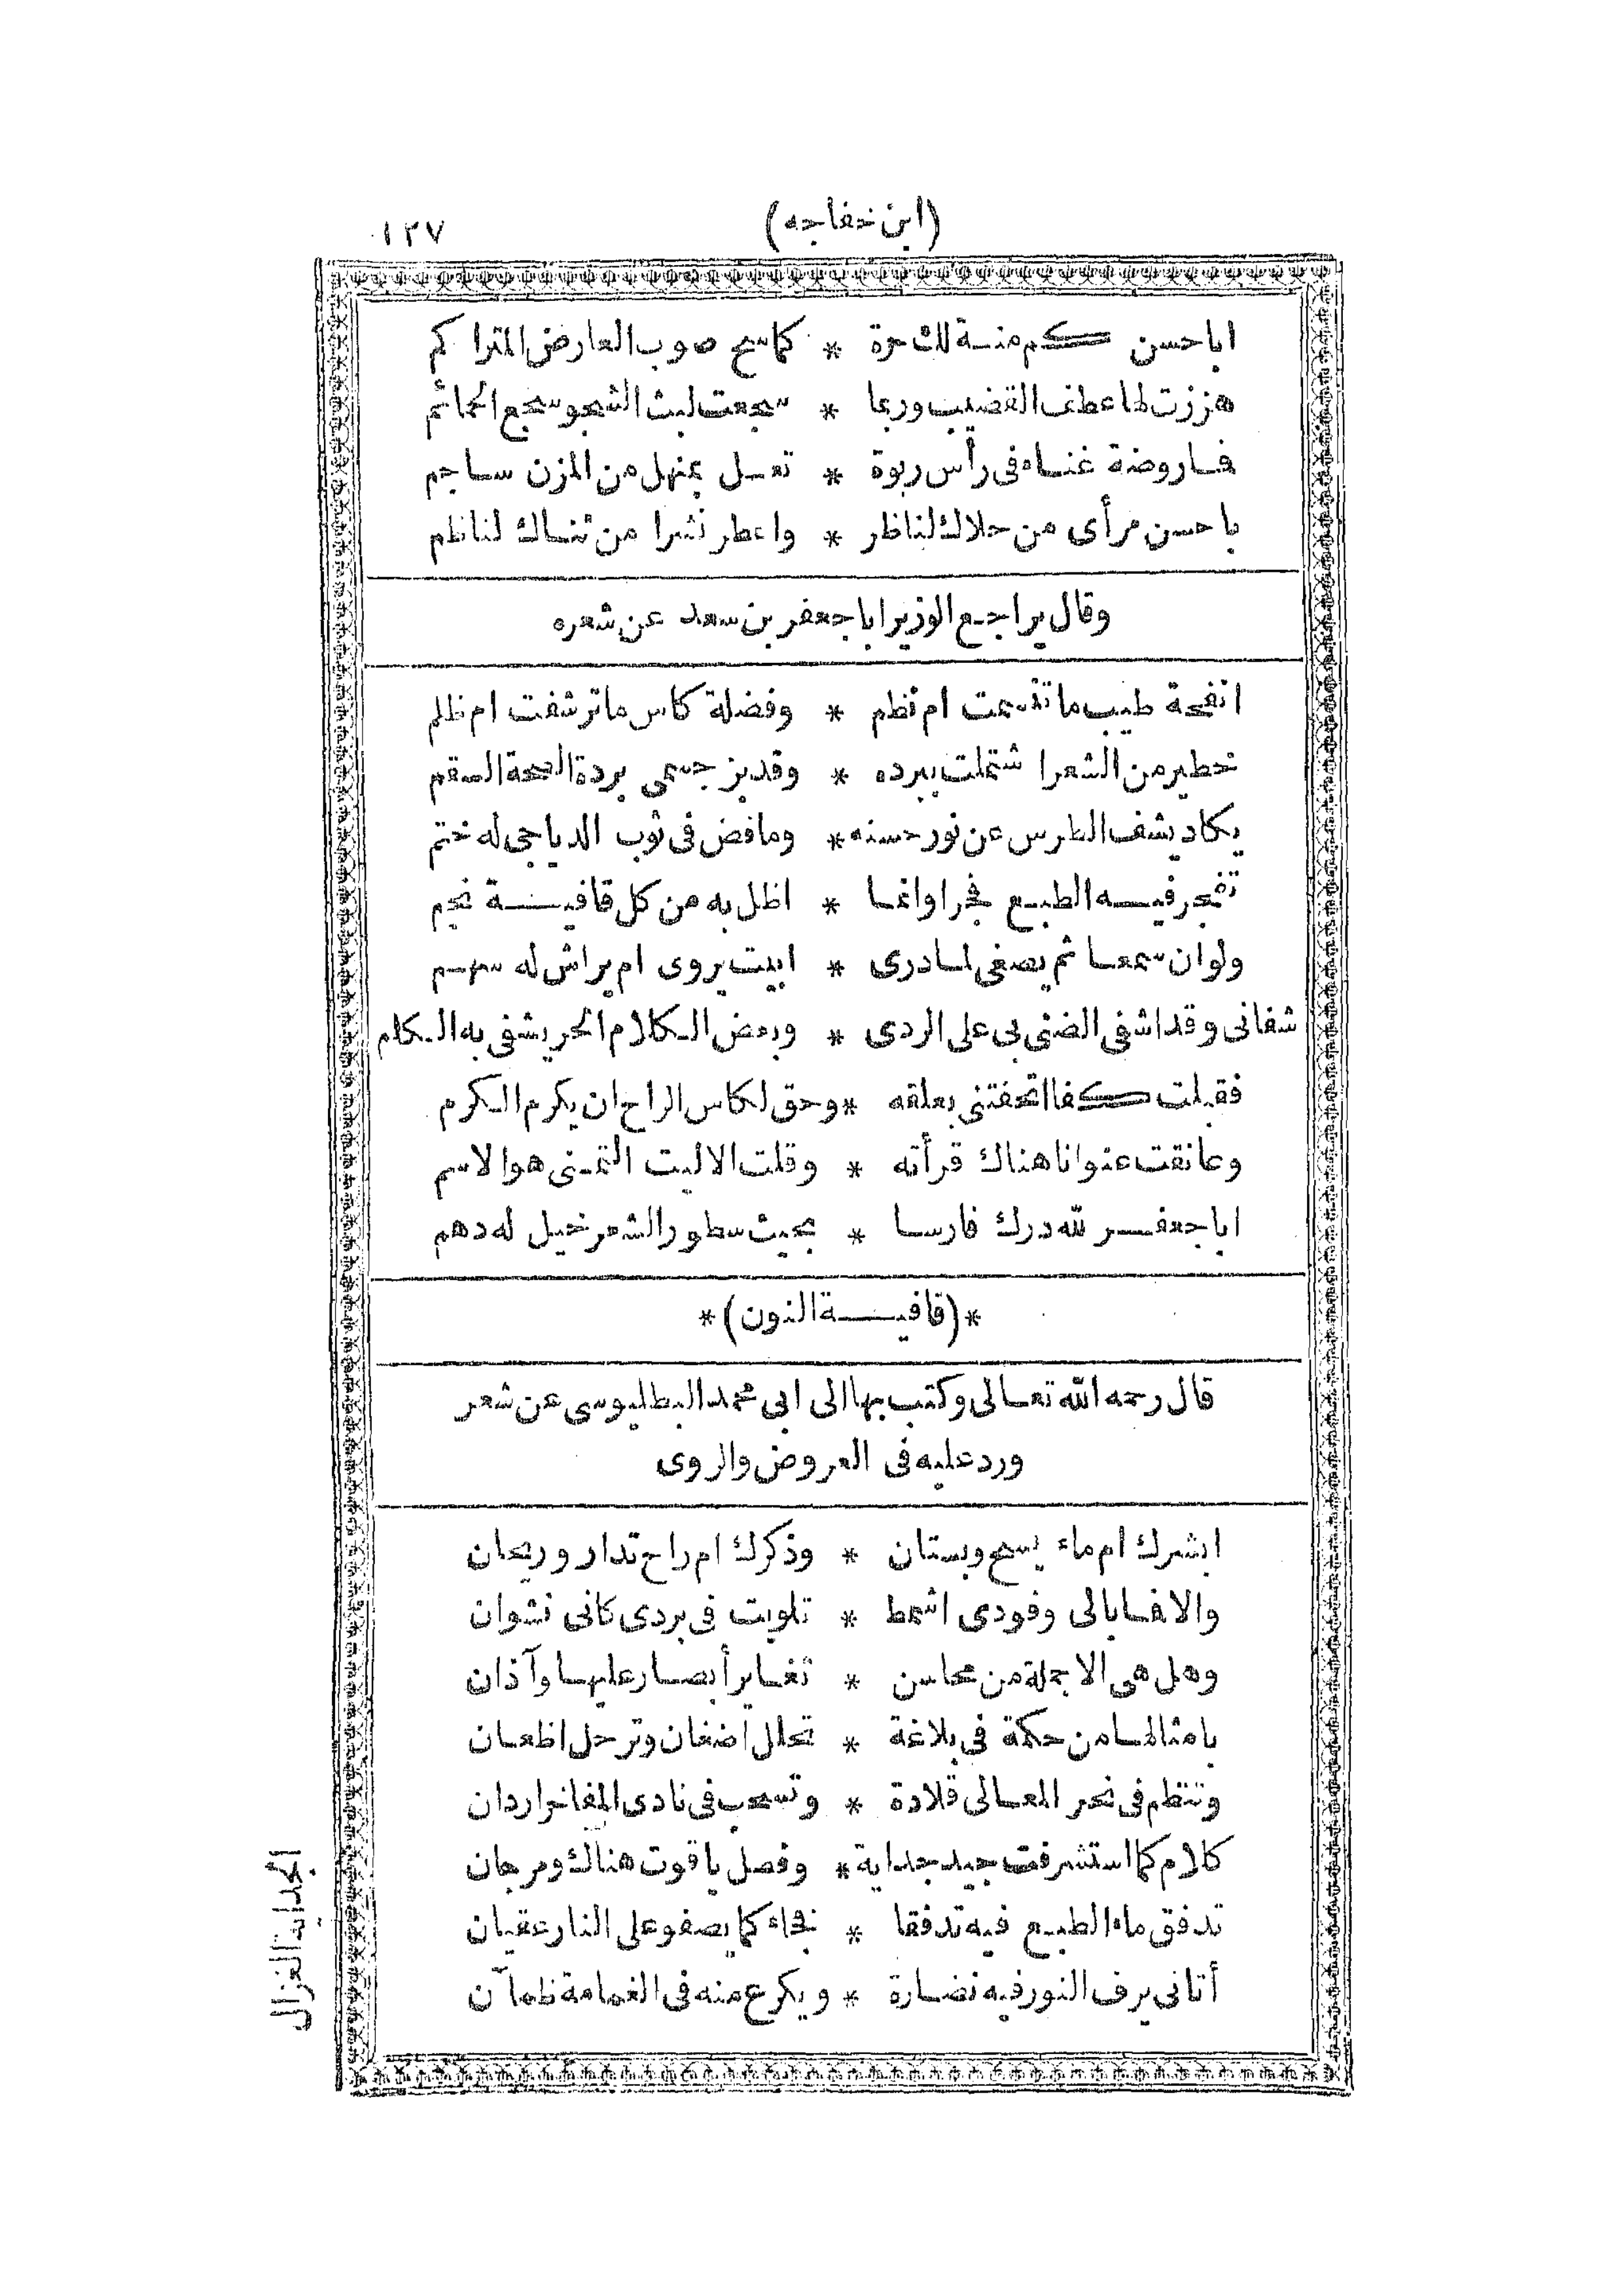 (ابن خفاجه) ١٢٧
ابا حسن كم منة لك حرة * كما سح صوب العارض المتراكم
هززت لها عطف القضيب وربما * سجعت لبث الشجو سجع الحمائم
فما روضة غناء فى رأس ربوة * تعل بمنهل من المزن ساجم
باحسن مرأى من حلاك لناظر * واعطر نشرا من ثناك لناظم
وقال يراجع الوزير ابا جعفر بن سعد عن شعره
انفحة طيب ما تنسمت ام نظم * وفضلة كاس ما ترشفت ام ظلم
خطير من الشعر اشتملت ببرده * وقد بز جسمى بردة الصحة السقم
يكاد يشف الطرس عن نور حسنه * وما فض فى ثوب الدياجى له ختم
تفجر فيه الطبع فجرا وانما * اظل به من كل قافية نجم
ولو ان سمعا ثم يصغى لما درى * ابيت يروى ام يراش له سهم
شفانى وقد اشفى الضنى بى على الردى * وبعض الكلام الحر يشفى به الكلم
فقبلت كفا اتحفتنى بعلقه * وحق لكاس الراح ان يكرم الكرم
وعانقت عنوانا هناك قرأته * وقلت الا ليت التمنى هو الاسم
ابا جعفر لله درك فارسا * بحيث سطور الشعر خيل له دهم
*(قافية النون)*
قال رحمه الله تعالى وكتب بها الى ابى محمد البطليوسى عن شعر
ورد عليه فى العروض والروى
ابشرك ام ماء يسح وبستان * وذكرك ام راح تدار وريحان
والا فما بالى وفودى اشمط * تلويت فى بردى كانى نشوان
وهل هى الا جملة من محاسن * تغاير أبصار عليها وآذان
بامثالها من حكمة فى بلاغة * تحلل اضغان وترحل اظعان
وتنظم فى نحر المعالى قلادة * وتسحب فى نادى المفاخر اردان
كلام كما استشرفت جيد جداية * وفصل ياقوت هناك ومرجان
تدفق ماء الطبع فيه تدفقا * فجاء كما يصفو على النار عقيان
أتانى يرف النور فيه نضارة * ويكرع منه فى الغمامة ظمآن
الجداية الغزال